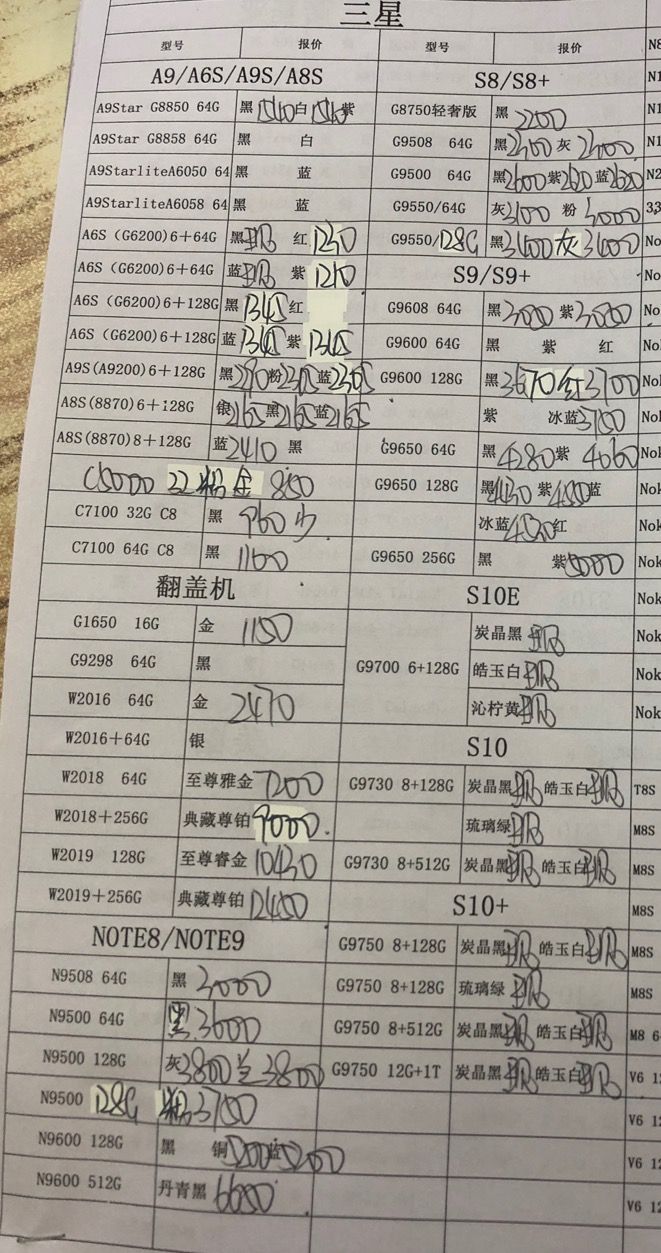 三星
型号 报价 型号 报价
A9/A6S/A9S/A8S S8/S8+
A9Star G8850 64G 黑 1540 白 1540 紫 G8750轻奢版 黑 2200
A9Star G8858 64G 黑 白 G9508 64G 黑 2400 灰 2400
A9StarliteA6050 64 黑 蓝 G9500 64G 黑 2600 紫 2620 蓝 2620
A9StarliteA6058 64 黑 蓝 G9550/64G 灰 3100 粉 3000
A6S (G6200)6+64G 黑 红 1230 G9550/128G 黑 3400 灰 3400
A6S (G6200)6+64G 蓝 紫 1210 S9/S9+
A6S (G6200)6+128G 黑 1345 红 G9608 64G 黑 3000 紫
A6S (G6200)6+128G 蓝 1345 紫 1345 G9600 64G 黑 紫 红
A9S(A9200)6+128G 黑 粉 2305 蓝 2305 G9600 128G 黑 3670 红 3700
A8S(8870)6+128G 银 2165 黑 2165 蓝 2165 紫 冰蓝 3750
A8S(8870)8+128G 蓝 2410 黑 G9650 64G 黑 4280 紫
C5000 32 粉 金 850 G9650 128G 黑 4430 紫 蓝
C7100 32G C8 黑 960 冰蓝 红
C7100 64G C8 黑 1160 G9650 256G 黑 紫 5000
翻盖机 S10E
G1650 16G 金 1150 炭晶黑
G9298 64G 黑 G9700 6+128G 皓玉白
W2016 64G 金 2470 沁柠黄
W2016+64G 银 S10
W2018 64G 至尊雅金 7200 G9730 8+128G 炭晶黑 皓玉白
W2018+256G 典藏尊铂 9000. 琉璃绿
W2019 128G 至尊睿金 10430 G9730 8+512G 炭晶黑 皓玉白
W2019+256G 典藏尊铂 12450 S10+
NOTE8/NOTE9 G9750 8+128G 炭晶黑 皓玉白
N9508 64G 黑 3000 G9750 8+128G 琉璃绿
N9500 64G 黑 3600 G9750 8+512G 炭晶黑 皓玉白
N9500 128G 灰 3800 兰 3800 G9750 12G+1T 炭晶黑 皓玉白
N9500 128G 粉 3750
N9600 128G 黑 铜 5200 蓝 5200
N9600 512G 丹青黑 6650
N8
N1
N1
N1
N2
33
No
No
No
No
Nok
Nok
Nok
Nok
Nok
Nok
Nok
Nok
Nok
Nok
T8S
M8S
M8S
M8S
M8S
M8S
M8 6
V6 12
V6 12
V6 12
V6 12